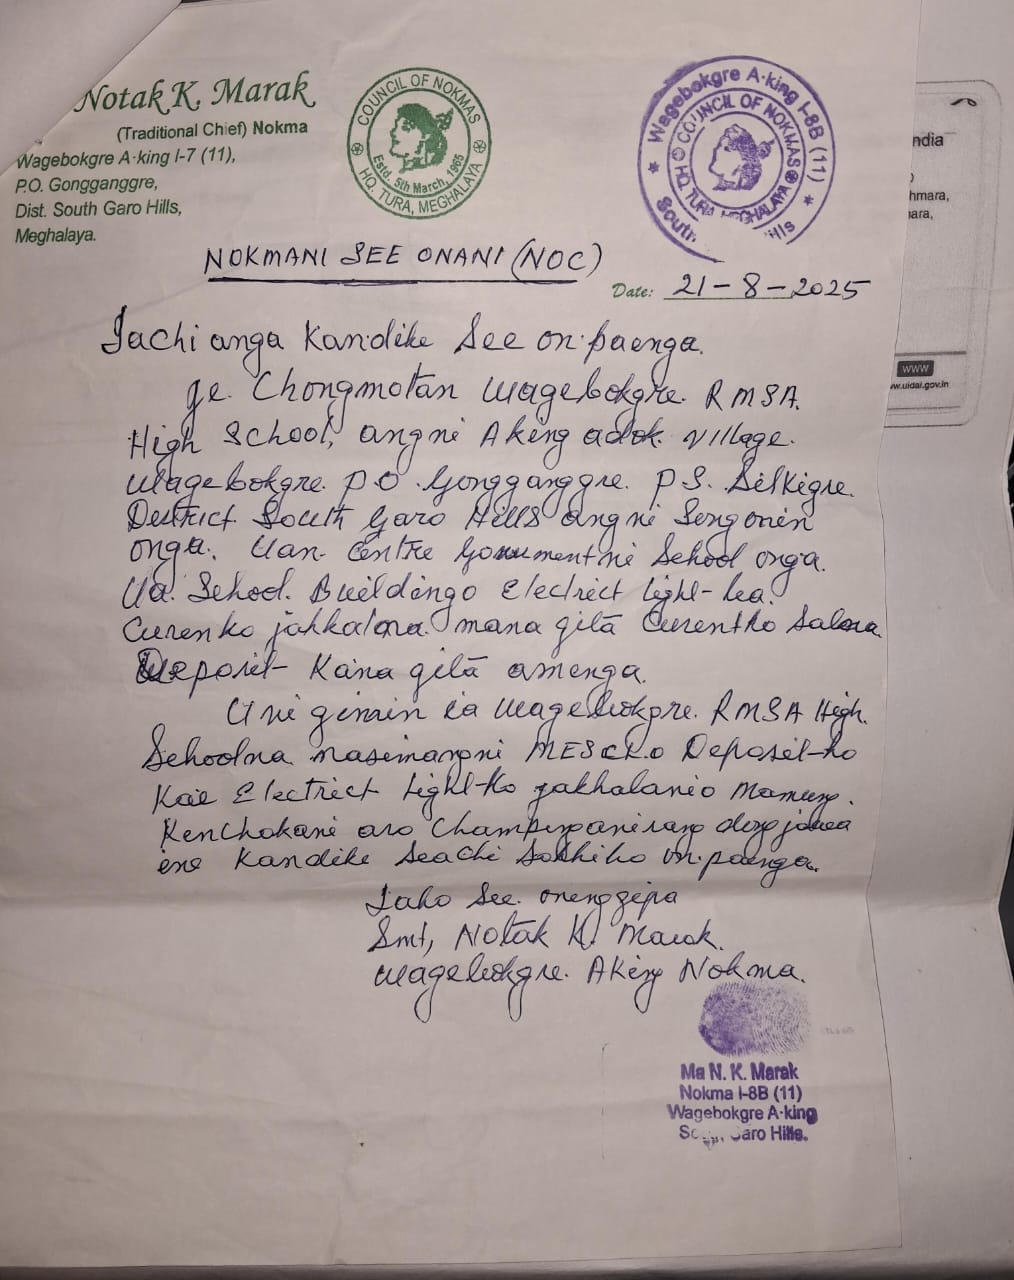 Notak K. Marak
(Traditional Chief) Nokma
Wagebokgre A·king I-7 (11),
P.O. Gongganggre,
Dist. South Garo Hills,
Meghalaya.
COUNCIL OF NOKMAS
Estd. 5th March, 1965
HQ. TURA, MEGHALAYA
Wagebokgre A·king I-8B (11)
COUNCIL OF NOKMAS
HQ. TURA MEGHALAYA
South
NOKMANI SEE ONANI (NOC)
Date: 21-8-2025
Iachi anga Kandike See on·paenga.
ge. Chongmotan Wagebokgre RMSA
High School, angni Aking adok village
Wagebokgre P.O. Gongganggre. P.S. Silkigre.
District South Garo Hills angni Songonin
onga. Uan Centre Gonument ni School onga.
Ua School Buildingo Electrict light-ka
Curenko jakkalna mana gita Curentko Salna
Deposit Kana gita amenga.
Uni gimin ia Wagebokgre RMSA High
Schoolna nasimangni MESCLo Deposit-ko
Kae Electrict Light-ko jakhalanio Mamung
Kenchokani aro Champengani rang dongjawa
ine Kandike Seachi Sakhiko on·paenga.
Iako See onenggipa
Smt, Notak K. Marak.
Wagebokgre Aking Nokma.
Ma N. K. Marak
Nokma I-8B (11)
Wagebokgre A·king
Garo Hills.
ndia
hmara,
www
w.uidai.gov.in